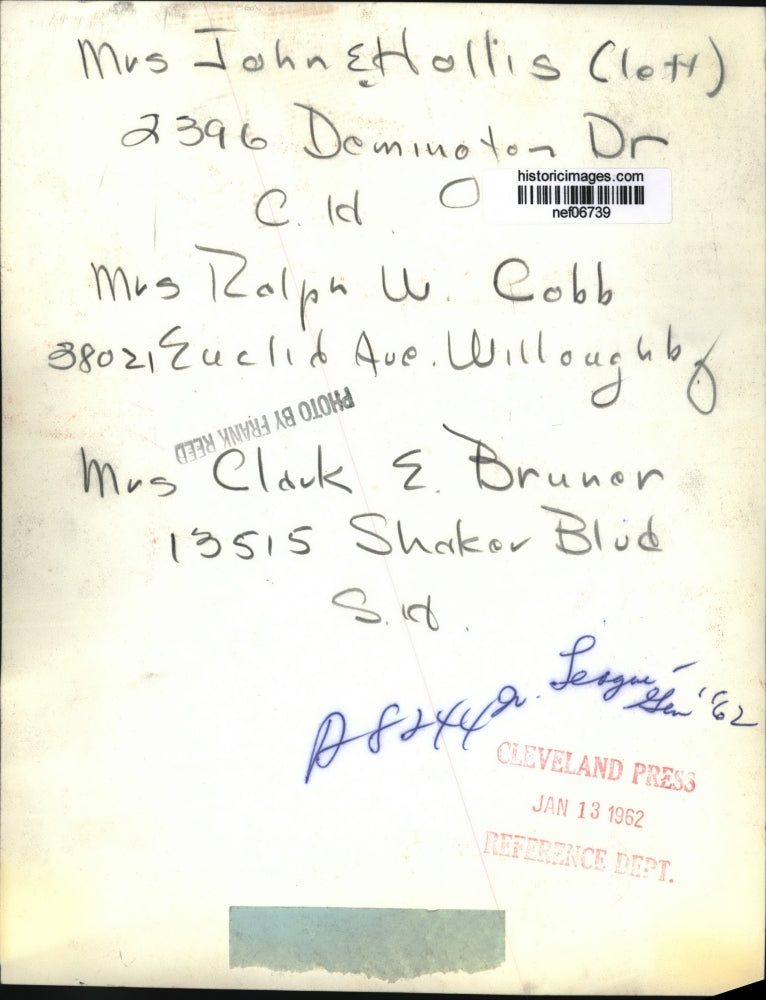 Mrs John E Hollis (left)
2396 Demington Dr
historicimages.com
nef06739
C. H
Mrs Ralph W. Cobb
38021 Euclid Ave. Willoughby
PHOTO BY FRANK REED
Mrs Clark E. Bruner
13515 Shaker Blvd
S. H.
Jr. League -
Gen '62
A8244
CLEVELAND PRESS
JAN 13 1962
REFERENCE DEPT.